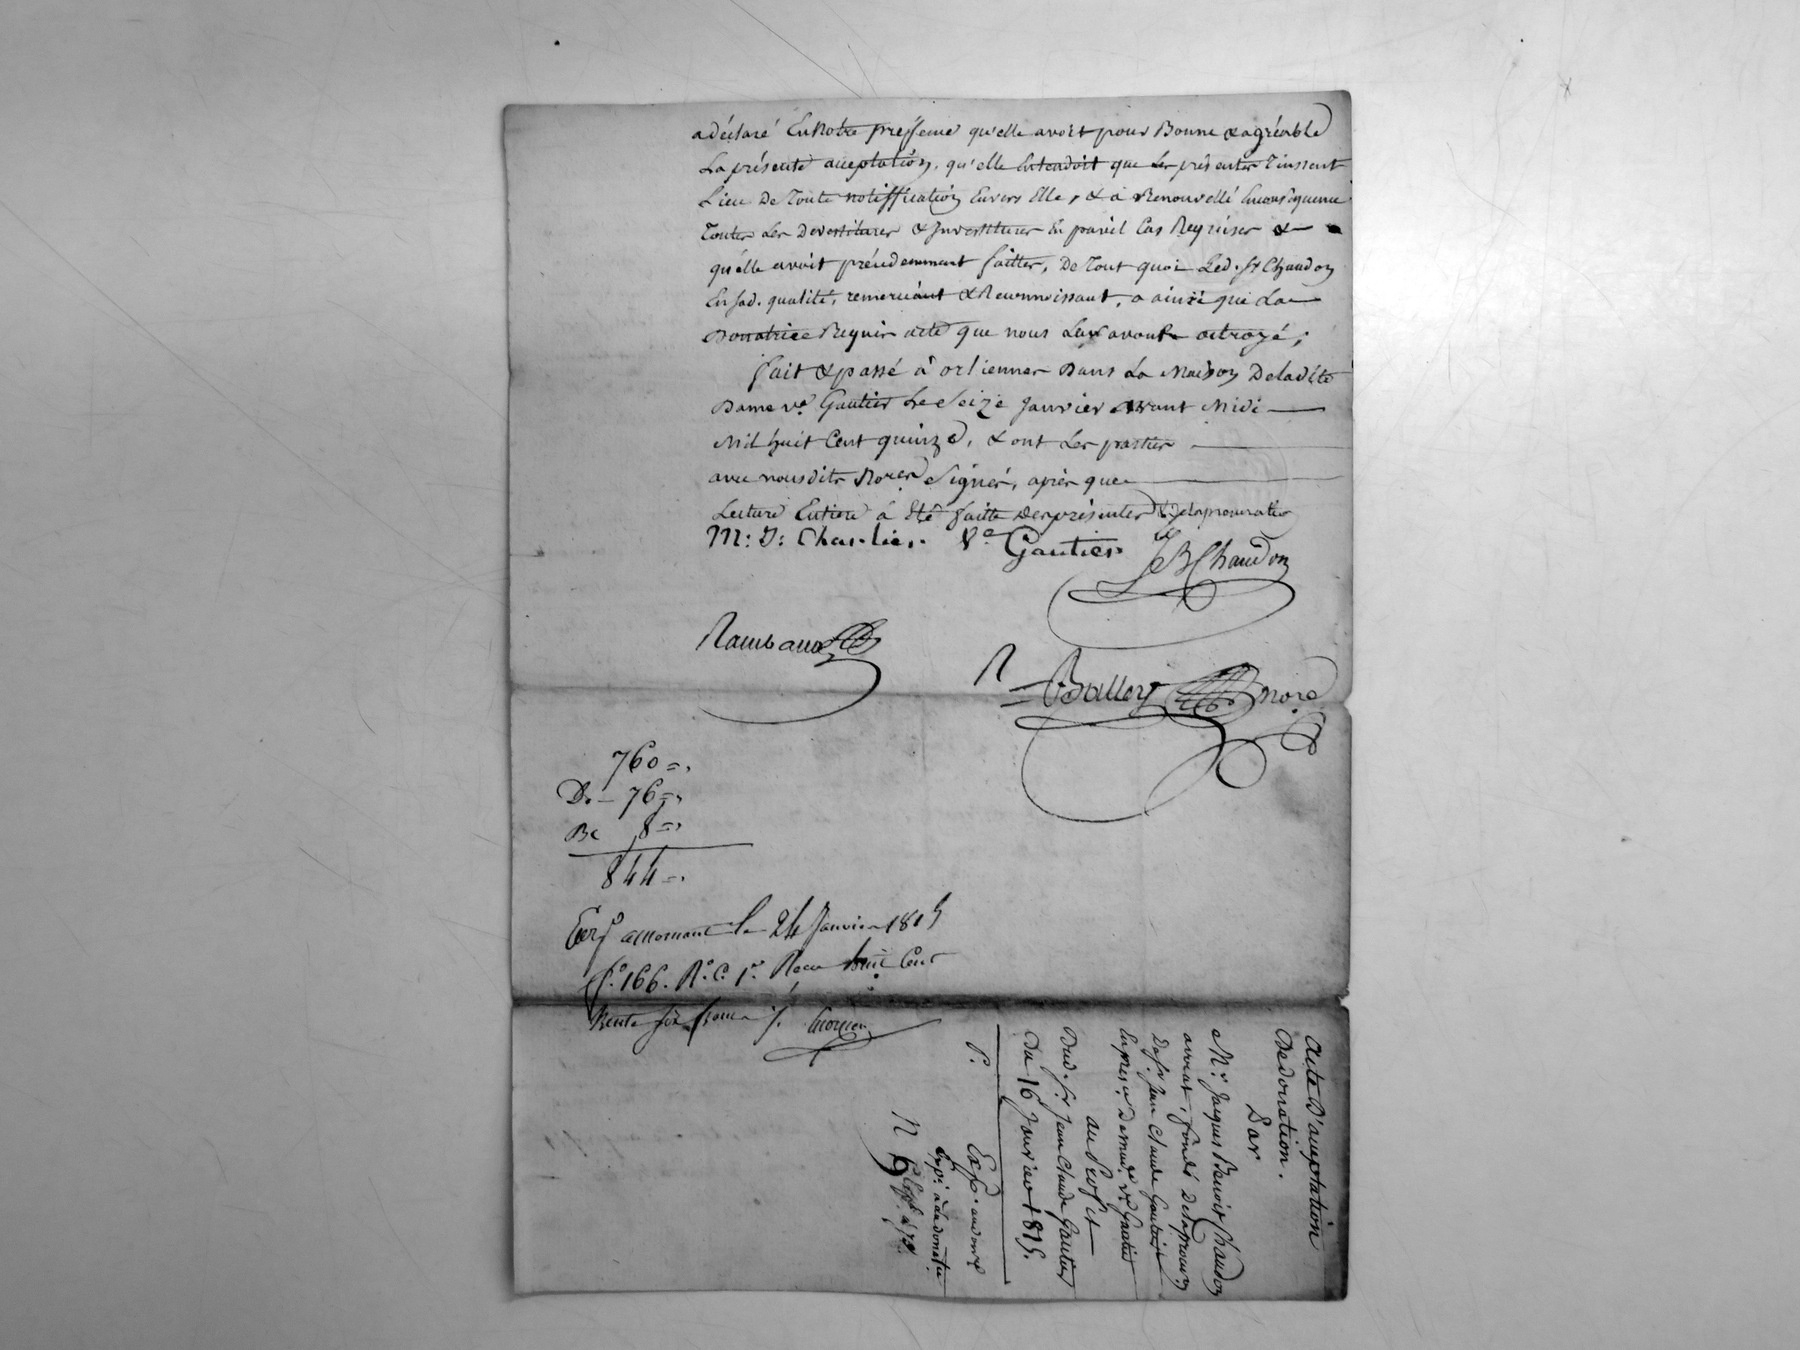 a déclaré En Notre presſence qu'elle avoit pour Bonne & agréable
La présente acceptation, qu'elle Entendoit que Les présentes Tinssent
Lieu De Toute notiffication Envers Elle, & a Renouvellé En conséquence
Toutes Les Devestitures & Investitures En pareil Cas Requises &
qu'elle avoit précédemment faittes, De Tout quoi Led. Sr Chaudon
En sad. qualité, remerciant & Reconnoissant, a ainsi que La
Donatrice Requis acte que nous Leur avons octroyé;
fait & passé à orlienner Dans La Maison De ladite
Dame ve. Gautier Le Seize Janvier avant Midi
Mil huit Cent quinze, & ont Les parties
avec nousdits Nores Signés, après que
Lecture Entiere à Eté faitte Des présentes & De la procuration
M: J: Charlier. Ve Gautier JB Chaudon
Rambaud
Balley nore
760 =.
D. — 76 =.
Be 8 =.
844 =.
à mornant le 24 Janvier 1815
fo. 166. Ro. C. 1re. Recu huit Cent
acte D'acceptation
De donation.
Par
Mr. Jacques Benoit Chaudon
avocat, fondé De la procuon
De Sr. Jean Claude Gautier
En présce De made. ve. Gautier
au Profit
Dud. Sr. Jean Claude Gautier
Du 16 Janvier 1815.